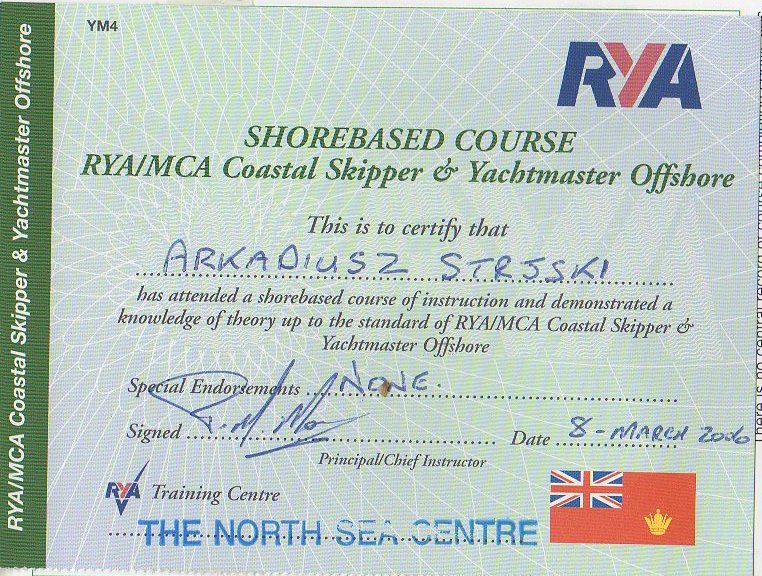 YM4
RYA
SHOREBASED COURSE
RYA/MCA Coastal Skipper & Yachtmaster Offshore
This is to certify that
ARKADIUSZ STRJSKI
has attended a shorebased course of instruction and demonstrated a
knowledge of theory up to the standard of RYA/MCA Coastal Skipper &
Yachtmaster Offshore
Special Endorsements NONE.
Signed Date 8-MARCH 2006
Principal/Chief Instructor
RYA Training Centre
THE NORTH SEA CENTRE
RYA/MCA Coastal Skipper & Yachtmaster Offshore